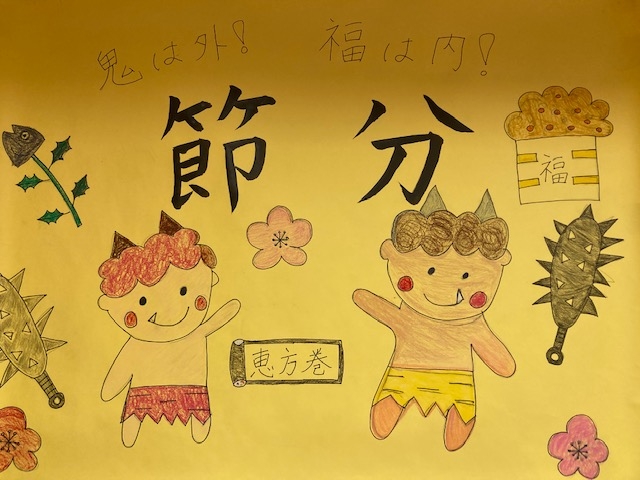 鬼は外! 福は内!
節分
福
恵方巻